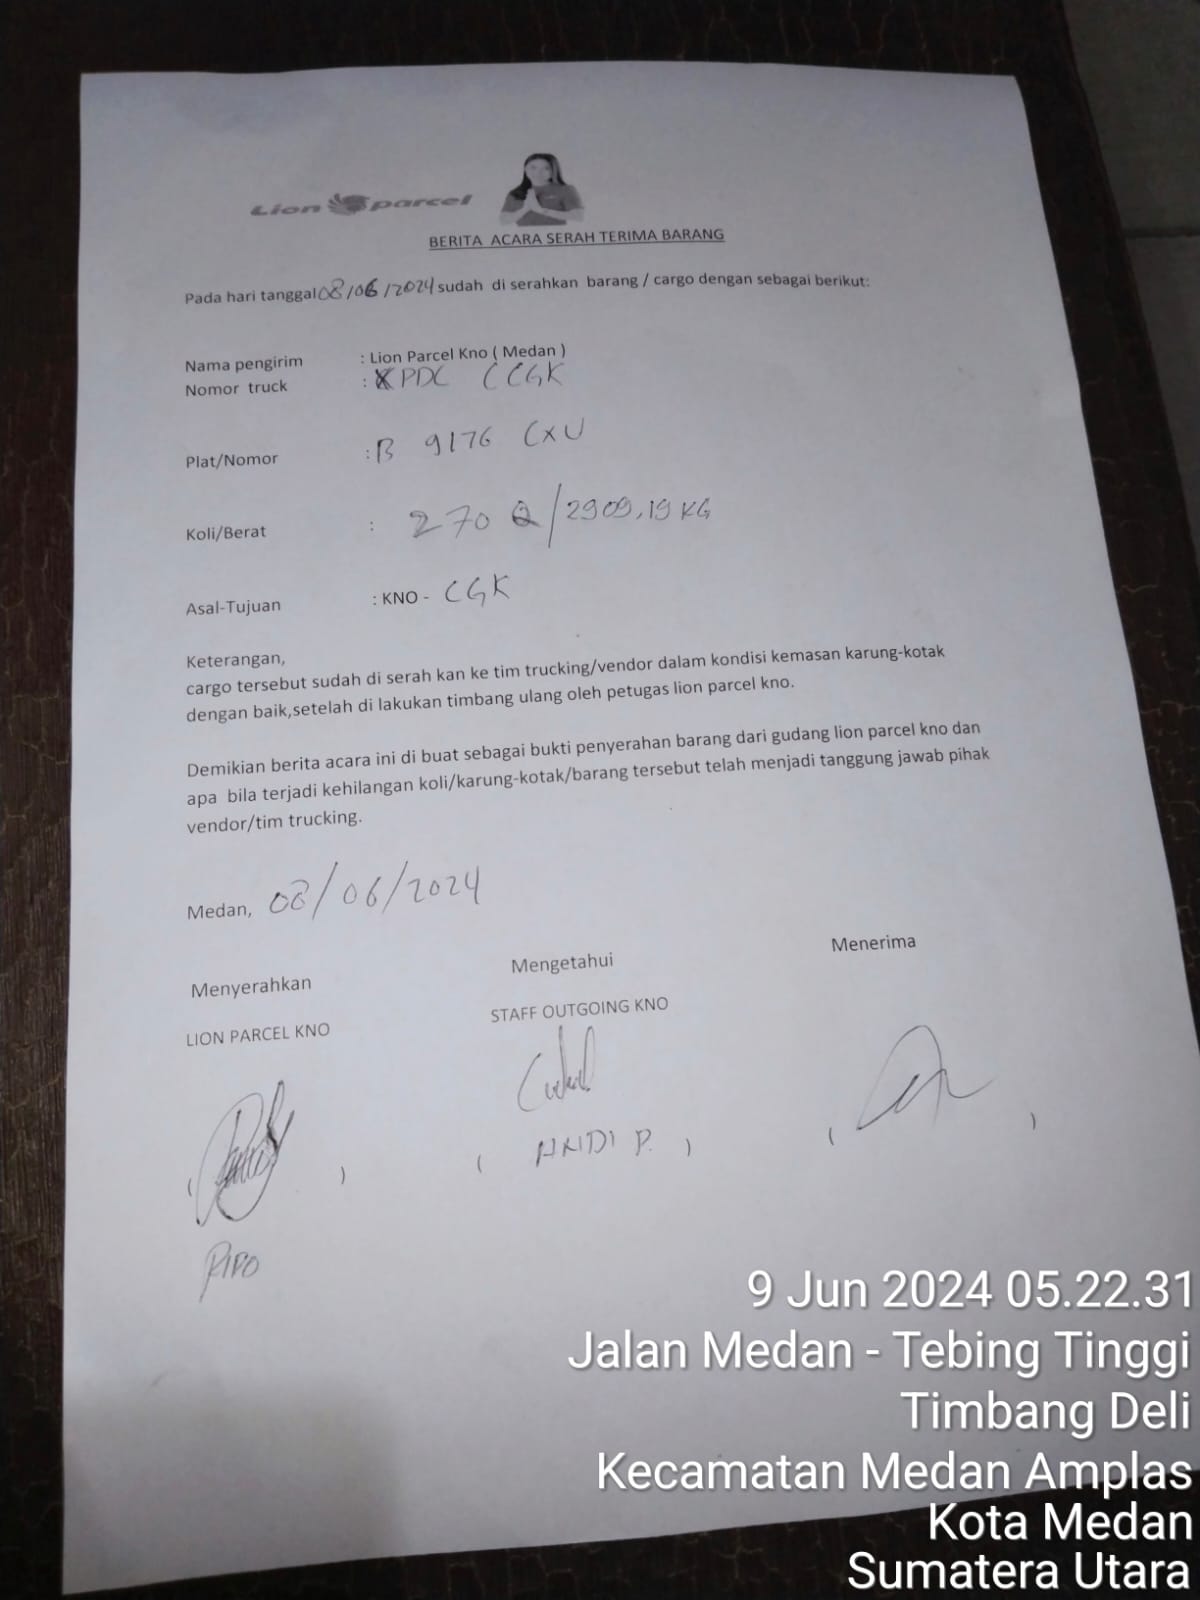 Lion parcel
BERITA ACARA SERAH TERIMA BARANG
Pada hari tanggal 08/06/2024 sudah di serahkan barang / cargo dengan sebagai berikut:
Nama pengirim : Lion Parcel Kno ( Medan )
Nomor truck : XPDC CCGK
Plat/Nomor : B 9176 CXU
Koli/Berat : 270 /2909,19 KG
Asal-Tujuan : KNO - CGK
Keterangan,
cargo tersebut sudah di serah kan ke tim trucking/vendor dalam kondisi kemasan karung-kotak
dengan baik,setelah di lakukan timbang ulang oleh petugas lion parcel kno.
Demikian berita acara ini di buat sebagai bukti penyerahan barang dari gudang lion parcel kno dan
apa bila terjadi kehilangan koli/karung-kotak/barang tersebut telah menjadi tanggung jawab pihak
vendor/tim trucking.
Medan, 08/06/2024
Menyerahkan Mengetahui Menerima
LION PARCEL KNO STAFF OUTGOING KNO
( ) ( P. ) ( )
9 Jun 2024 05.22.31
Jalan Medan - Tebing Tinggi
Timbang Deli
Kecamatan Medan Amplas
Kota Medan
Sumatera Utara